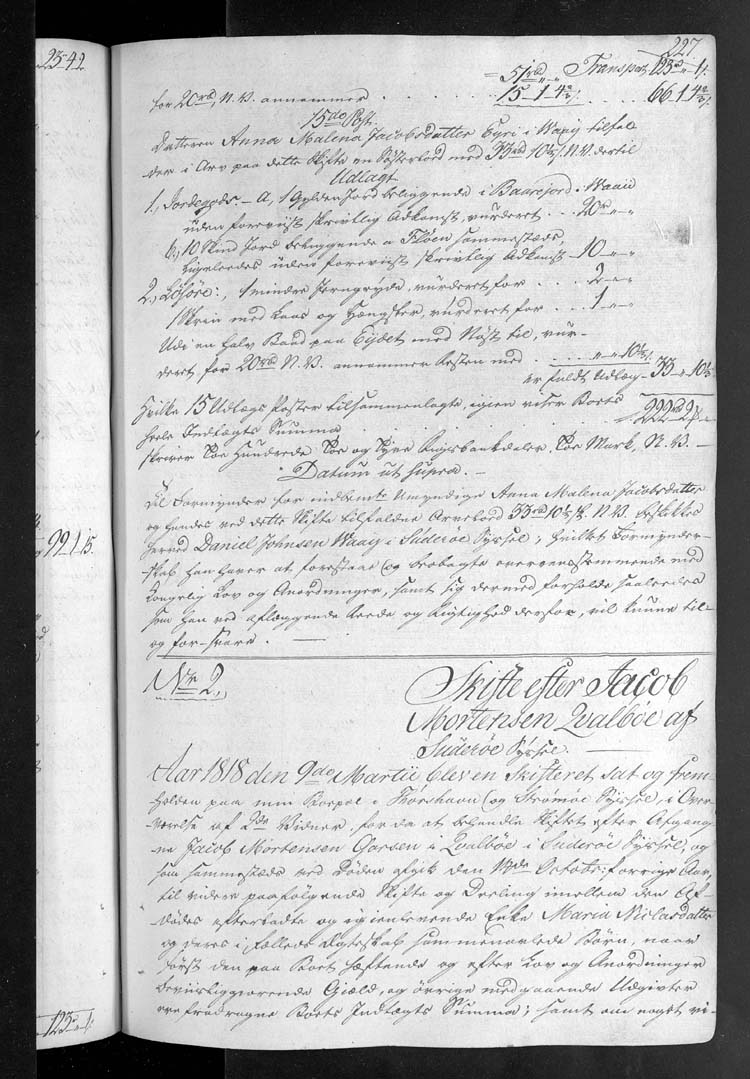 2542
227
= 51rd „ „ Transport 123rd „ 1 ß
for 20rd, N.V. annammer . . . . 15 „ 1 „ 4 2/3 ß . . . 66 1 4 2/3 ß
15de Post.
Datteren Anna Malena Jacobsdatter Eyri i Waaig tilfal-
der i Arv paa dette Skifte en Søsterlod med 33rd 10 2/3 ß N.V. dertil
Udlagt
1., Jordegods. – A, 1 Gylden Jord beliggende i i Waaig
uden foreviist skrivtlig Adkomst, vurderet . . 20rd „ „
b., 10 Skind Jord beliggende a Fløen sammesteds,
ligeleedes uden foreviist skrivtlig Adkomst – 10 „ „
2., Løsøre:, 1 mindre Jerngryde, vurderet for . . . . 2 „ „
1 Skrin med Laas og Hængsler, vurderet for . . . 1 „ „
Udi en halv Baad paa Eydet med Nøst til, vur-
deret for 20rd N.V. annammer Resten med . . . . „ „ 10 2/3 ß
er fuldt Udlæg – 33 „ 10 2/3
Hvilke 15 Udlægs Poster tilsammenlagte, igien viser Boets
heele Indtægts Summa . . . . . 222rd 2 ß
skriver Toe Hundrede, Toe og Tyve Rigsbankdaler, Toe Mark, N.V. –
Datum ut supra. –
Til Formynder for Umyndige Anna Malena Jacobsdatter
og hendes ved dette Skifte tilfaldne Arvelod 33rd 10 2/3 ß N.V. beskikkes
herved Daniel Johnsen Waaig i Suderøe Syssel; hvilket Formynder-
skab han haver at forestaae og iagtage overeensstemmende med
Kongelig Lov og Anordninger, samt sig dermed forholde saaledes
som han ved aflæggende Reede og Rigtighed derfor, vil kunne til-
og for-svare. –
99 1 15.
No 2,
Skifte efter Jacob
Mortensen Qvalbøe af
Suderøe Syssel. –
Aar 1818 den 9de Martii blev en Skifteret sat og frem-
holden paa min Bopæl i Thorshavn og Strømøe Syssel, i Over-
værelse af 2de Vidner, for da at behandle Skiftet efter Afgang-
ne Jacob Mortensen i Qvalbøe i Suderøe Syssel, og
som sammesteds ved Døden afgik den Octobr: forrige Aar,
til videre paafølgende Skifte og Deeling imellem den Af-
dødes efterladte og igienlevende Enke Maria Niclasdatter
og deres i fælleds Ægteskab sammenavlede Børn, naar
først den paa Boet hæftende og efter Lov og Anordninger
beviisliggiørende Giæld, og øvrige medgaaende Udgivter
ere fradragne Boets Indtægts Summa; samt om noget vi-
123 „ 1.